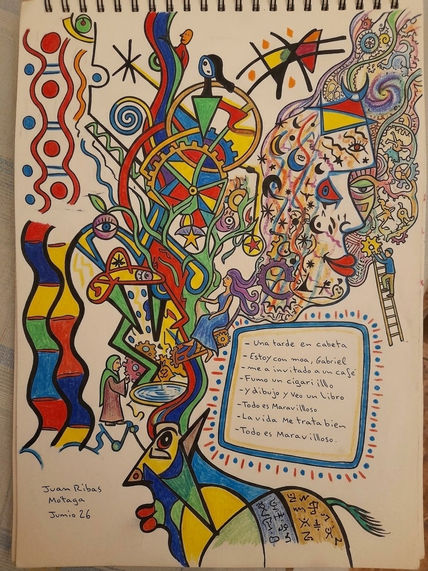 Una tarde en cabeta
- Estoy con moa, Gabriel
- me a invitado a un café
- Fumo un cigarillo
- y dibujo y veo un libro
- Todo es Maravilloso
- La vida me trata bien
- Todo es Maravilloso.
Juan Ribas
Motaga
Jumio 26